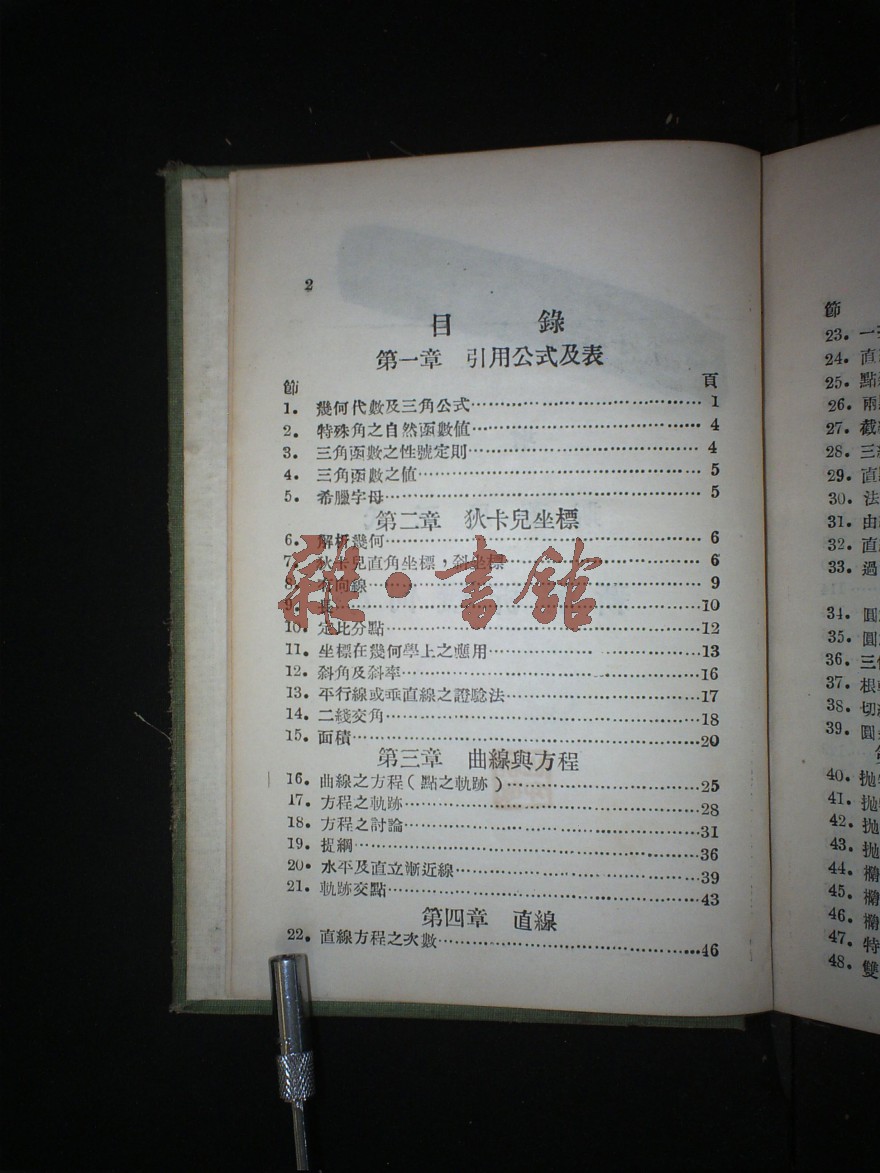 2
目 錄
第一章 引用公式及表
節 頁
1. 幾何代數及三角公式……1
2. 特殊角之自然函數値……4
3. 三角函數之性號定則……4
4. 三角函數之值……5
5. 希臘字母……5
第二章 狄卡兒坐標
6. 解析幾何……6
7. 狄卡兒直角坐標，斜坐標……6
8. 有向線……9
9. 長……10
10. 定比分點……12
11. 坐標在幾何學上之應用……13
12. 斜角及斜率……16
13. 平行線或垂直線之證騐法……17
14. 二綫交角……18
15. 面積……20
第三章 曲線與方程
16. 曲線之方程（點之軌跡）……25
17. 方程之軌跡……28
18. 方程之討論……31
19. 捉綱……36
20. 水平及直立漸近線……39
21. 軌跡交點……43
第四章 直線
22. 直線方程之次數……46
雜·書館
節
23. 一
24. 直
25. 點
26. 兩
27. 截
28. 三
29. 直
30. 法
31. 由
32. 直
33. 過
34. 圓
35. 圓
36. 三
37. 根
38. 切
39. 圓
40. 抛
41. 抛
42. 抛
43. 抛
44. 橢
45. 橢
46. 橢
47. 特
48. 雙